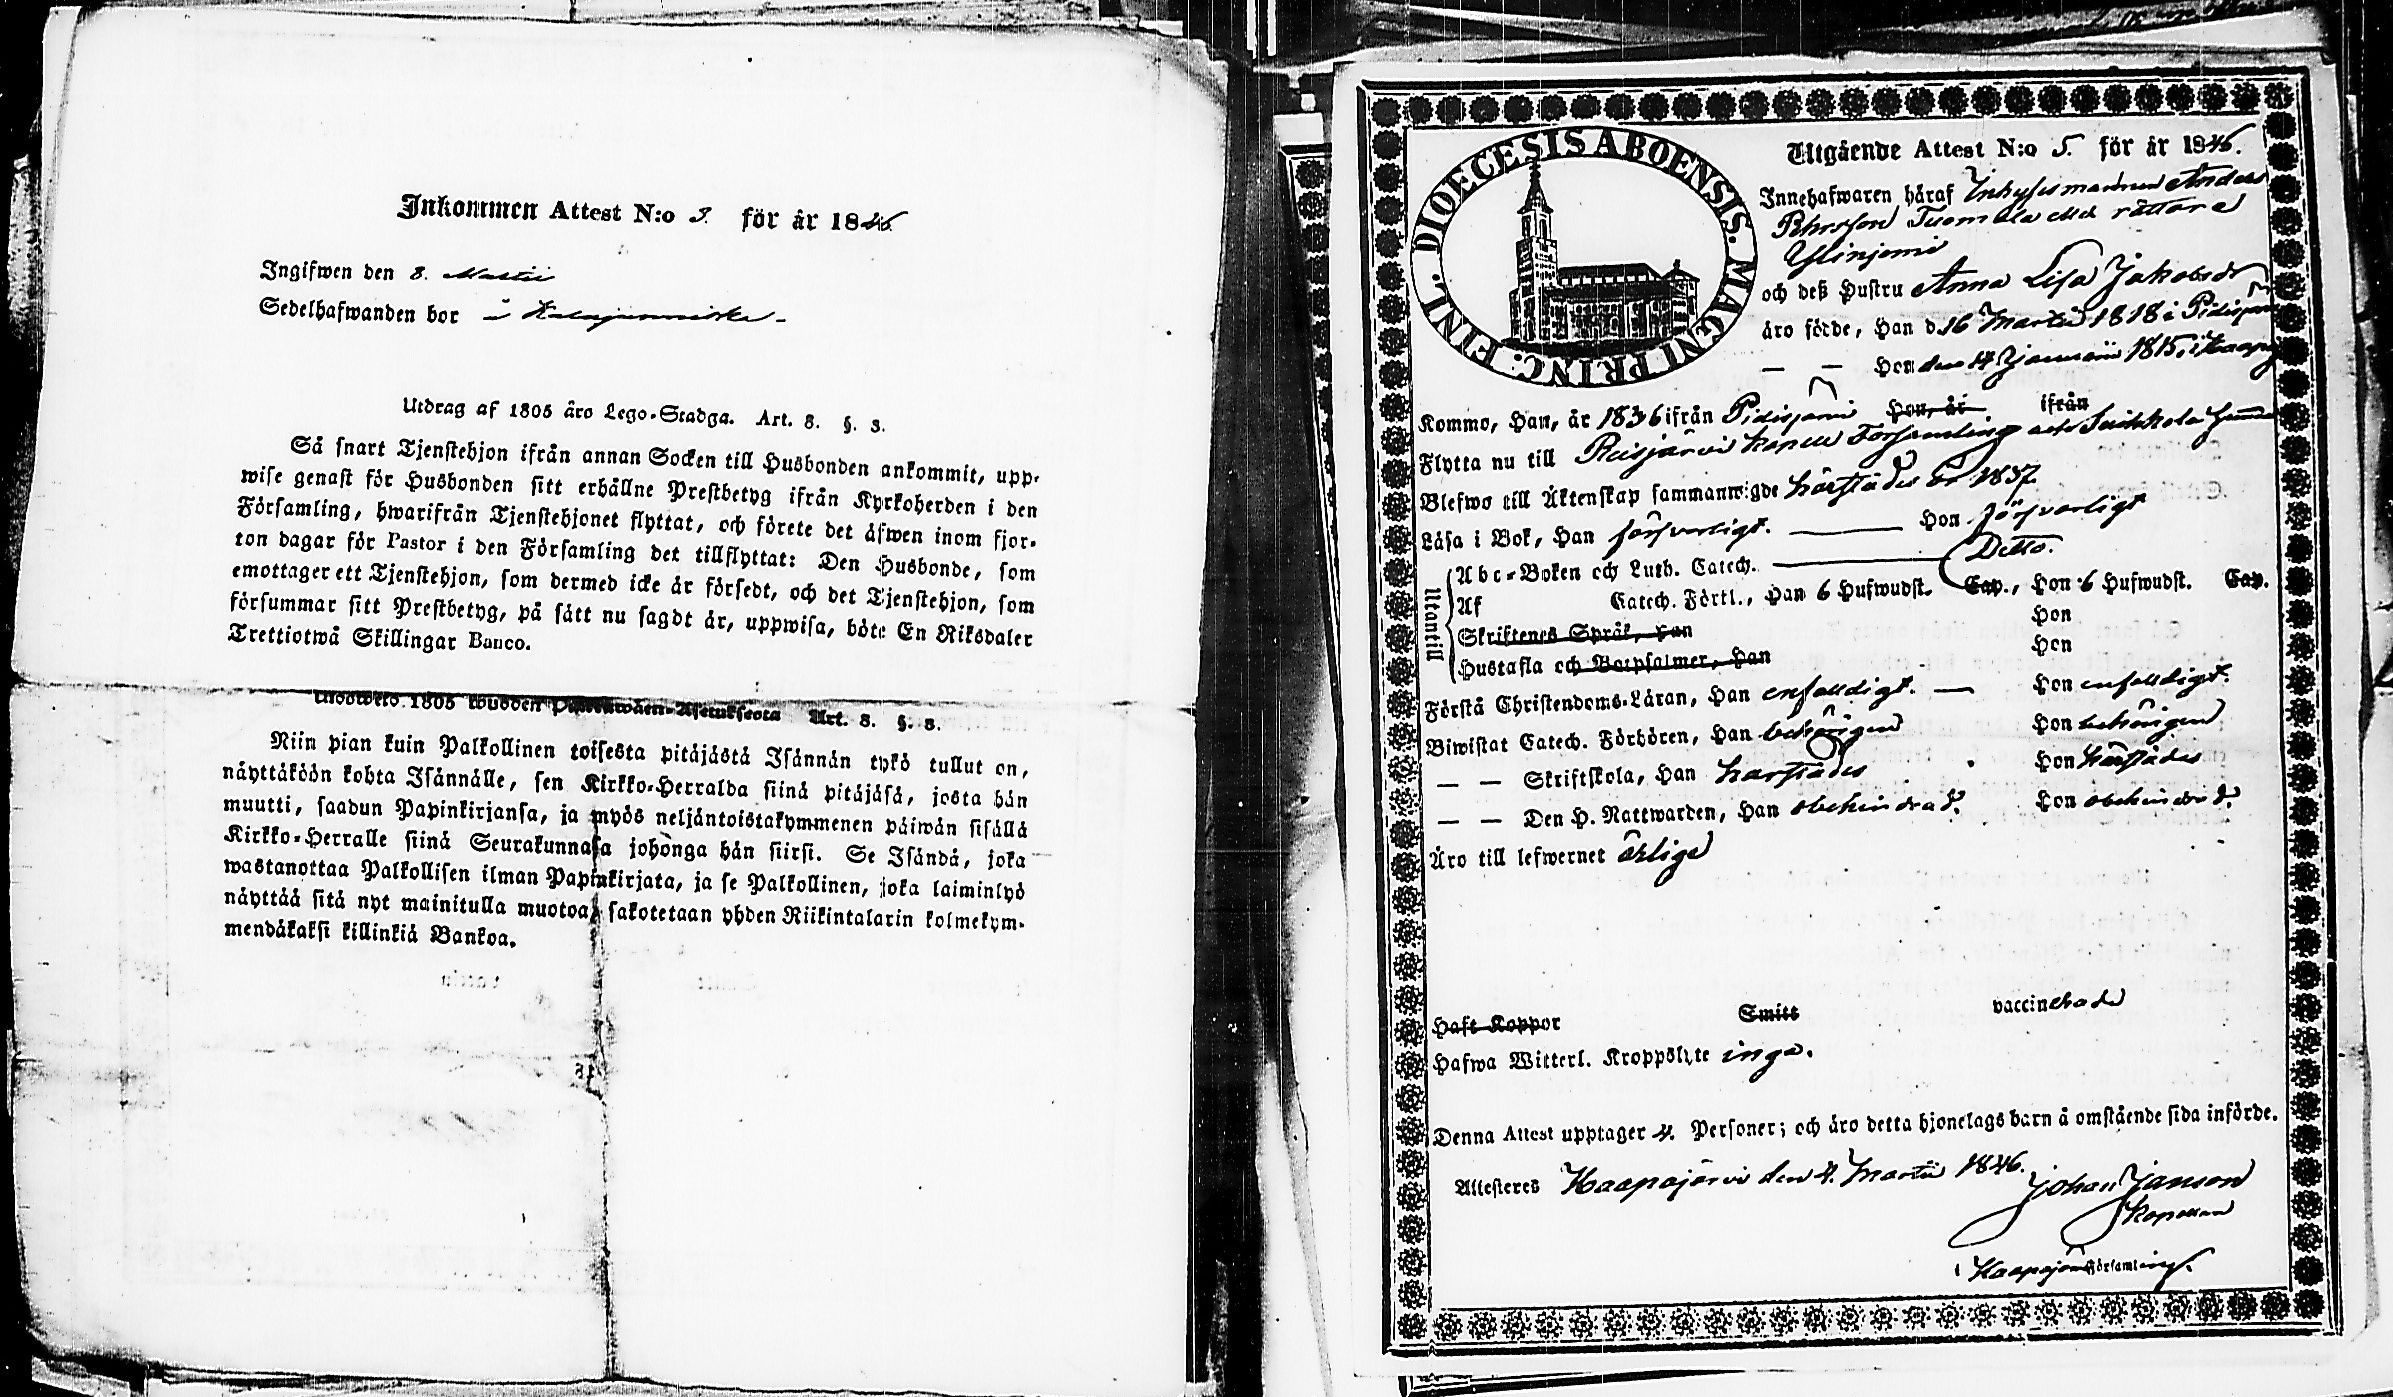 Inkommen Attest N:o 3. för år 1846.
Ingifwen den 8. Martii
Sedelhafwanden bor i
Utdrag af 1805 åro Lego-Stadga. Art. 8. §. 3.
Så snart Tjenstehjon ifrån annan Socken till Husbonden ankommit, upp-
wise genast för Husbonden sitt erhållne Prestbetyg ifrån Kyrkoherden i den
Församling, hwarifrån Tjenstehjonet flyttat, och förete det äfwen inom fjor-
ton dagar för Pastor i den Församling det tillflyttat: Den Husbonde, som
emottager ett Tjenstehjon, som dermed icke är försedt, och det Tjenstehjon, som
försummar sitt Prestbetyg, på sätt nu sagdt är, uppwisa, böte En Riksdaler
Trettiotwå Skillingar Banco.
Uloswето 1805 wuoden Palkkawäen-Asetuksesta Art. 8. §. 3.
Niin pian kuin Palkollinen toisesta pitäjästä Isännän tykö tullut on,
näyttäköön kohta Isännälle, sen Kirkko-Herralda siinä pitäjäsä, josta hän
muutti, saadun Papinkirjansa, ja myös neljäntoistakymmenen päiwän sisällä
Kirkko-Herralle siinä Seurakunnasa johonga hän siirsi. Se Isändä, joka
wastanottaa Palkollisen ilman Papinkirjata, ja se Palkollinen, joka laiminlyö
näyttää sitä nyt mainitulla muotoa, sakotetaan yhden Riikintalarin kolmekym-
mendäkaksi killinkiä Bankoa.
DIOECESIS ABOENSIS. MAGNI PRINC: FINL.
Utgående Attest N:o 5. för år 1846.
Innehafwaren häraf Inhysesmannen Anders
Pehrsson Tuomala
Ylinjemi
och deß Hustru Anna Lisa Jakobsdr
äro födde, Han d. 16 Martii 1818 i Pidisjärvi
— — Hon den 14 Januarii 1815, i Haapaj
Kommo, Han, år 1836 ifrån Pidisjärvi Hon, år ifrån
Flytta nu till Reisjärvi Kapell Församling
Blefwo till Äktenskap sammanwigde härstädes år 1837
Läsa i Bok, Han försvarligt. — Hon försvarligt
Utantill
Abc-Boken och Luth. Catech. — Ditto.
Af Catech. Förkl., Han 6 Hufwudst. Cap., Hon 6 Hufwudst. Cap.
Skriftenes Språk, Han Hon
Hustafla och Botpsalmer, Han Hon
Förstå Christendoms-Läran, Han enfaldigt. — Hon enfaldigt.
Biwistat Catech. Förhören, Han behörigen Hon behörigen
— — Skriftskola, Han härstädes Hon härstädes
— — Den H. Nattwarden, Han obehindrad. Hon obehindrad.
Äro till lefwernet ärliga
Haft Koppor Smitt vaccinerade
Hafwa Witterl. Kroppslyte inga.
Denna Attest upptager 4. Personer; och äro detta hjonelags barn å omstående sida införde.
Attesteres Haapajärvi den 4. Martii 1846.
Johan Janson
Kapellan
i Haapajärvi Församling.